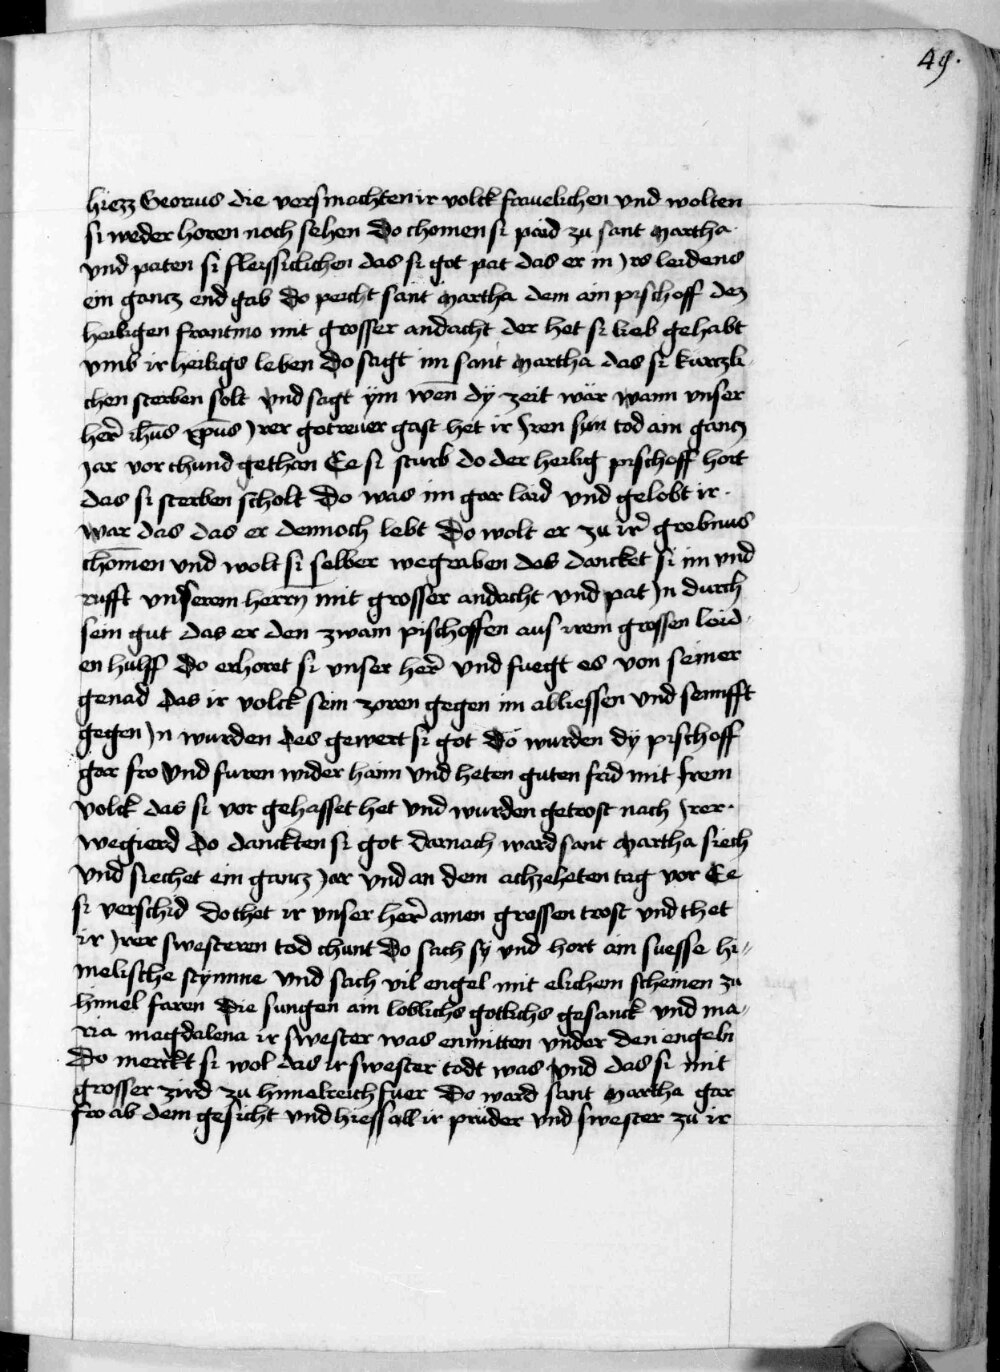 49.
hiezz Georius die versmachten ir volck frauelichen vnd wolten
si weder horen noch sehen Do chomen si paid zu sant Martha
vnd paten si fleyssiclichen das si got pat das er in yrs leidens
ein gancz end gab Do peicht sant Martha dem ain pischoff dez
heiligen frontino mit grosser andacht der het si lieb gehabt
vmb ir heiligs leben Do sagt im sant Martha das si kurczli
chen sterben solt vnd sagt ym weñ dy zeit wär wann vnser
her̃ ihũs xp̃us yrer getrewer gast het ir Iren sun tod ain gancz
Jar vor chund gethan Ee si sturb do der heilig pischoff hort
das si sterben scholt Do was im gar laid vnd gelobt ir
war das das er dennoch lebt Do wolt er zu ir̃ grebnus
chom̃en vnd wolt si selber wegraben des dancket si im vnd
rufft vnserem herrn mit grosser andacht vnd pat yn durch
sein gut das er den zwain pischoffen aus irem grossen leid
en hulff Do erhoret si vnser her̃ vnd fuegt es von seiner
genad das ir volck sein zoren gegen im abliessen vnd senifft
gegen yn wurden des gewert si got Do wurden dy pischoff
gar fro vnd furen wider haim vnd heten guten frid mit Irem
volck das si vor gehasset het vnd wurden getrost nach Irer
wegierd Do danckten si got darnach ward sant Martha siech
vnd siechet ein gancz Jar vnd an dem achzeheten tag vor Ee
si verschid do thet ir vnser her̃ ainen grossen trost vnd thet
ir yrer swesteren tod chunt Do sach sy vnd hort ain suesse hi-
melische stymme vnd sach vil engel mit elichem scheinen zu
himel faren Die sungen ain loblichs gotlichs gesanck vnd ma-
ria magdalena ir swester was enmitten vnder den engeln
Do merckt si wol das ir swester todt was vnd das si mit
grosser zird zu himelreich fuer Do ward sant Martha gar
fro ab dem gesicht vnd hiess all ir prüder vnd swester zu ir